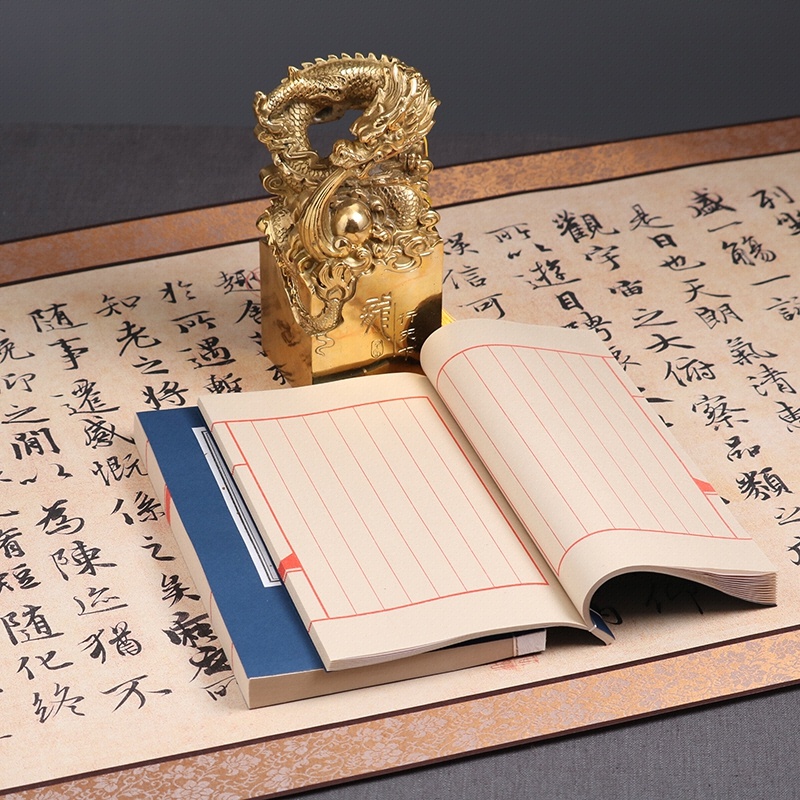 列坐
盛一觴一詠
是日也天朗氣清惠
觀宇宙之大俯察品類之
所以遊目騁懷
娛信可
趣舍
於所遇蹔
知老之將
隨事遷感慨係之矣
俛仰之間以為陳迹猶不
脩短隨化終